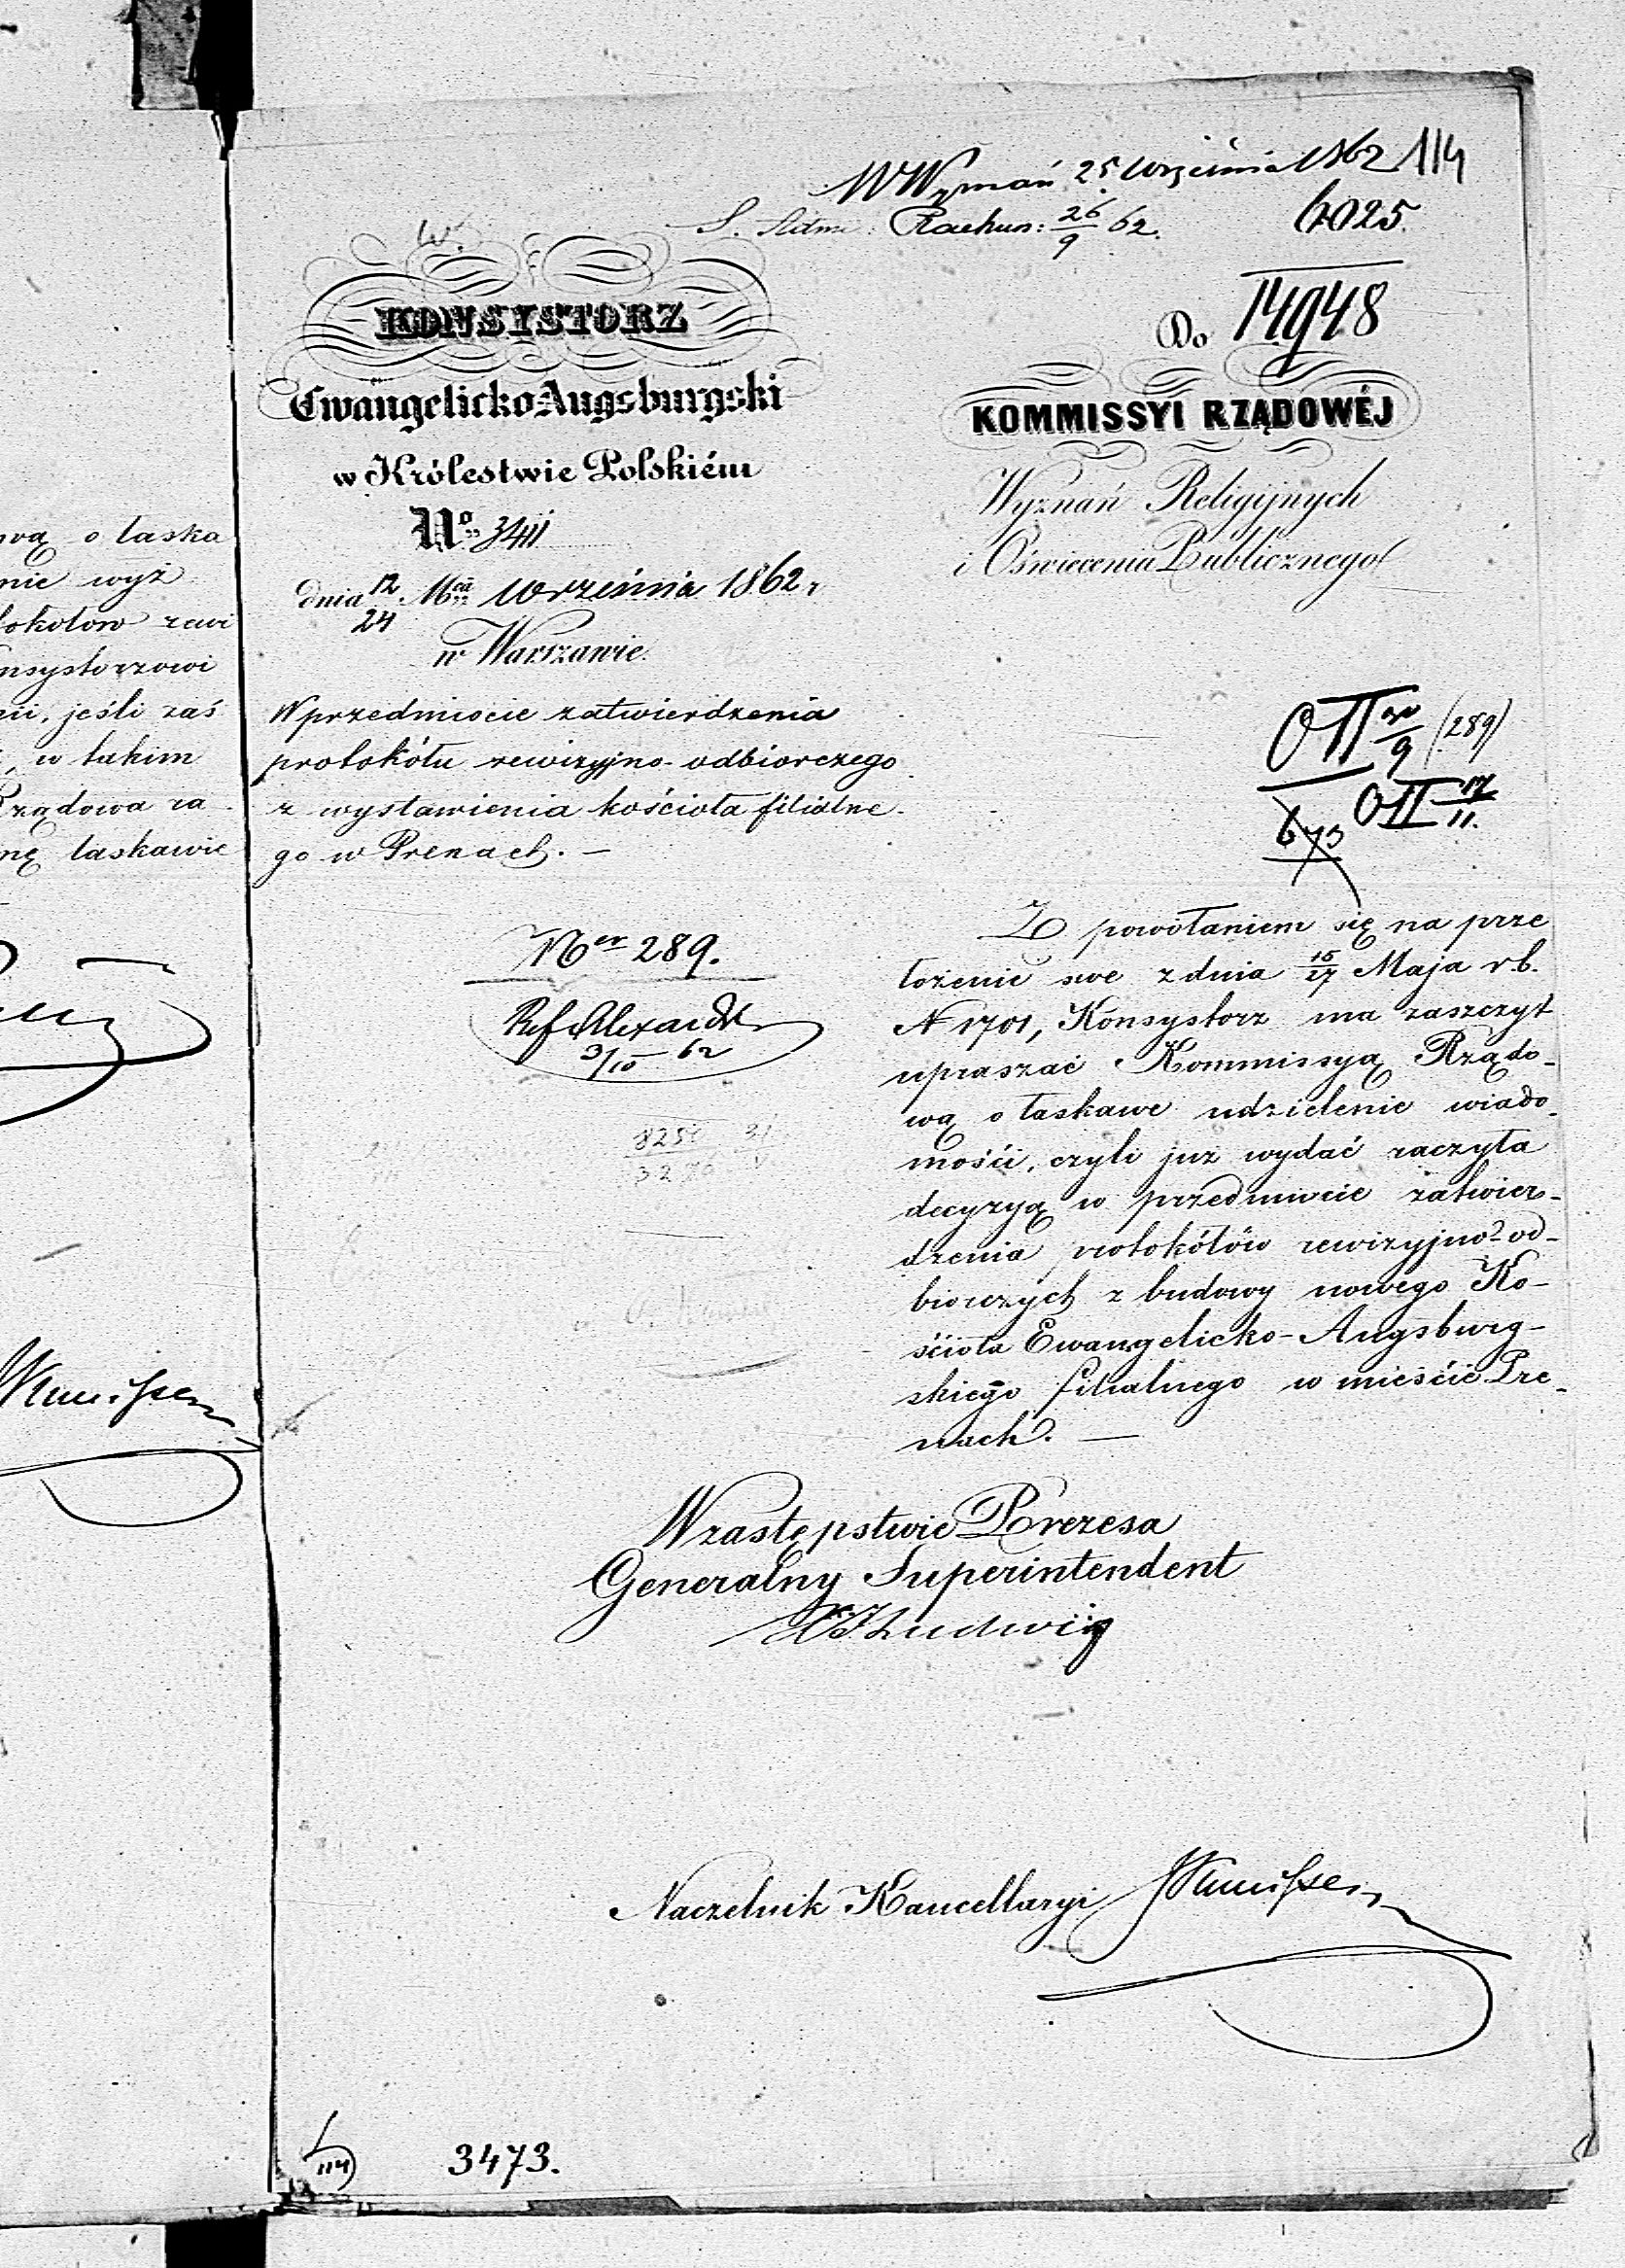 W Wyznań 25 Września 1862 114
Rachun: 26/9 62.
6025.
14948
KONSYSTORZ
Ewangelicko Augsburgski
w Królestwie Polskiém
No 3411
dnia 12/24 Mca Września 1862 r
w Warszawie.
Do
KOMMISSYI RZĄDOWÉJ
Wyznań Religijnych
i Oświecenia Publicznego
W przedmiocie zatwierdzenia
protokółu rewizyjno-odbiorczego
z wystawienia kościoła filialne-
go w Prenach. —
(289)
673
Ner 289.
Ref Alexandr
3/10 62
Z powołaniem się na prze
łożenie swe z dnia 15/27 Maja r.b.
N 1701, Konsystorz ma zaszczyt
upraszać Kommissyą Rządo-
wą o łaskawe udzielenie wiado-
mości, czyli już wydać raczyła
decyzyą w przedmiocie zatwier-
dzenia protokółów rewizyjno-od-
biorczych z budowy nowego Ko-
ścioła Ewangelicko-Augsburg-
skiego filialnego w mieście Pre-
nach. —
W zastępstwie Prezesa
Generalny Superintendent
Ludwig
Naczelnik Kancellaryi
114
3473.
o łaska
nie wyż
nsystorzowi
jeśli zaś
, w takim
Rządowa ra
łaskawie